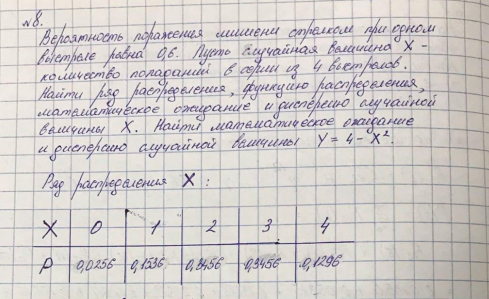 №8.
Вероятность поражения мишени стрелком при одном
выстреле равна 0,6. Пусть случайная величина X -
количество попаданий в серии из 4 выстрелов.
Найти ряд распределения, функцию распределения,
математическое ожидание и дисперсию случайной
величины X. Найти математическое ожидание
и дисперсию случайной величины Y = 4 - X².
Ряд распределения X :
X 0 1 2 3 4
P 0,0256 0,1536 0,3456 0,3456 0,1296